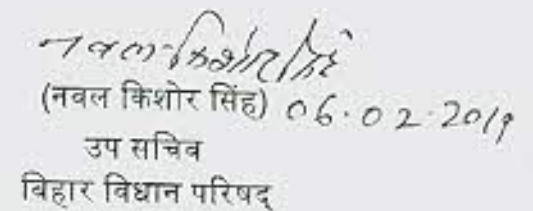 नवल किशोर सिंह
(नवल किशोर सिंह) 06.02.2019
उप सचिव
बिहार विधान परिषद्